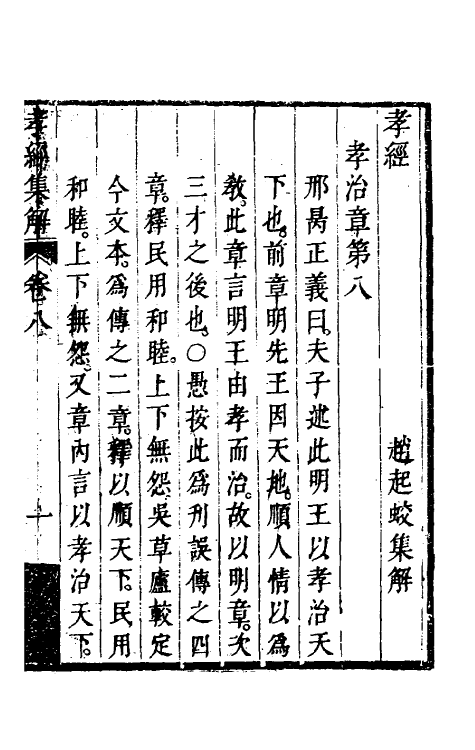 孝經　趙起蛟集解
孝治章第八
邢昺正義曰。夫子述此明王以孝治天
下也。前章明先王因天地。順人情以爲
教。此章言明王由孝而治。故以明章。次
三才之後也。○愚按此爲刋誤傳之四
章。釋民用和睦。上下無怨。吳草廬較定
今文本。爲傳之二章。釋以順天下。民用
和睦。上下無怨。又章內言以孝治天下。
孝經集解　卷八　一